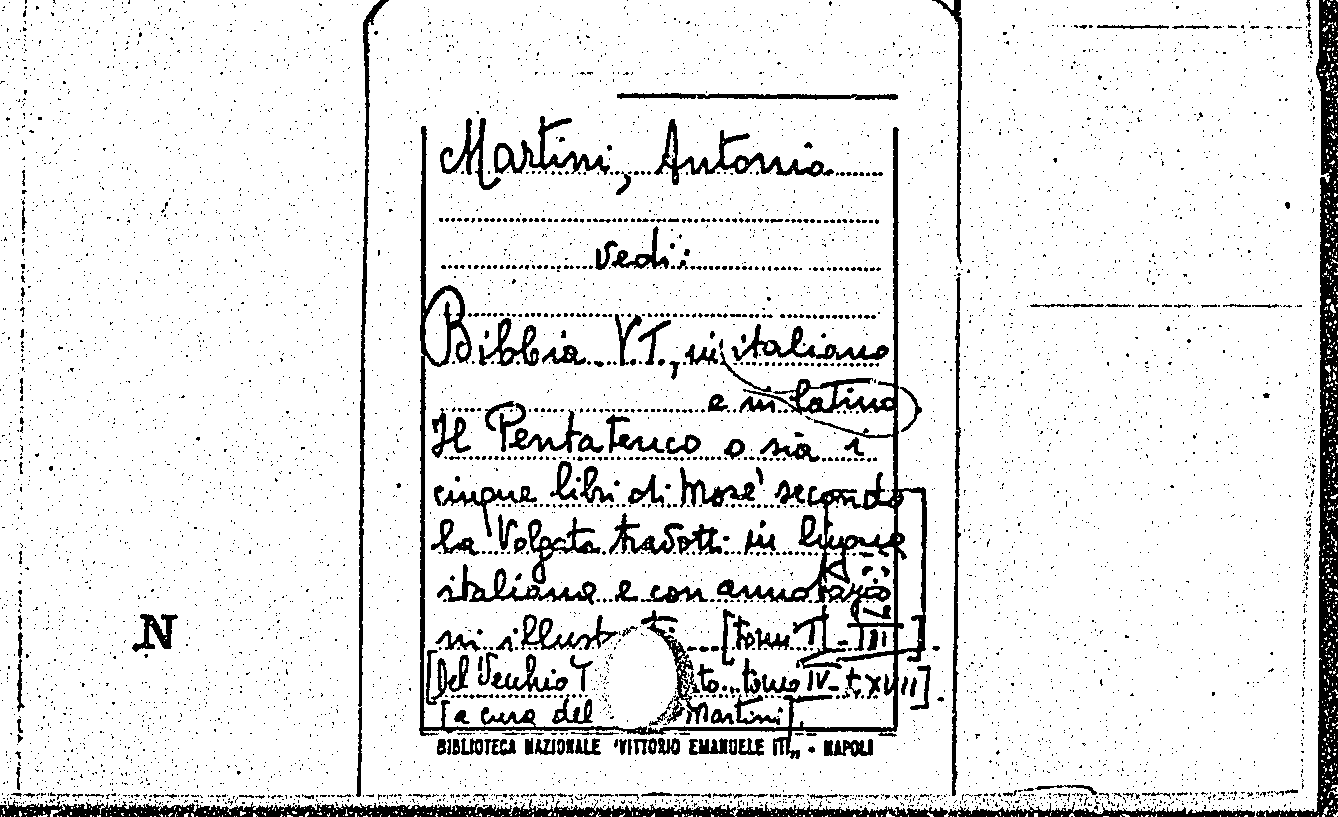 Martini, Antonio
vedi:
Bibbia. V.T., in italiano
e in latino
Il Pentateuco o sia i
cinque libri di Mosè secondo
la Volgata tradotti in lingua
italiana e con annotazio
ni illust ti ... [tomo I - III].
[Del Vecchio T to tomo IV - t. XVII].
[a cura del Martini].
BIBLIOTECA NAZIONALE "VITTORIO EMANUELE III„ - NAPOLI
N